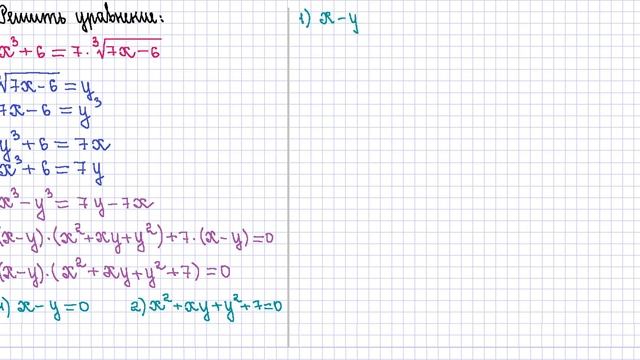 Решить уравнение:
x³ + 6 = 7 · ³√7x − 6
√7x − 6 = y
7x − 6 = y³
y³ + 6 = 7x
x³ + 6 = 7y
x³ − y³ = 7y − 7x
(x − y) · (x² + xy + y²) + 7 · (x − y) = 0
(x − y) · (x² + xy + y² + 7) = 0
1) x − y = 0 2) x² + xy + y² + 7 = 0
1) x − y